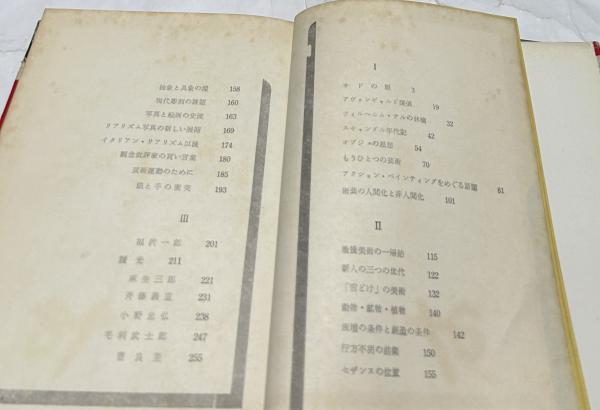 I
サドの眼 3
アヴァンギャルド探偵 19
フォルヘルム・テルの林檎 32
スキャンダル年代記 42
オブジェの思想 54
もうひとつの芸術 70
アクション・ペインティングをめぐる話題 81
芸術の人間化と非人間化 101
II
戦後美術の一帰結 115
新人の三つの世代 122
「雪どけ」の美術 132
動物・鉱物・植物 140
画壇の条件と創造の条件 142
行方不明の前衛 150
セザンヌの位置 155
抽象と具象の間 158
現代彫刻の課題 160
写真と絵画の交流 163
リアリズム写真の新しい展開 169
イタリアン・リアリズム以後 174
観念批評家の買い言葉 180
芸術運動のために 185
眼と手の衝突 193
III
福沢一郎 201
靉光 211
麻生三郎 221
斉藤義重 231
小野忠弘 238
毛利武士郎 247
豊良至 255